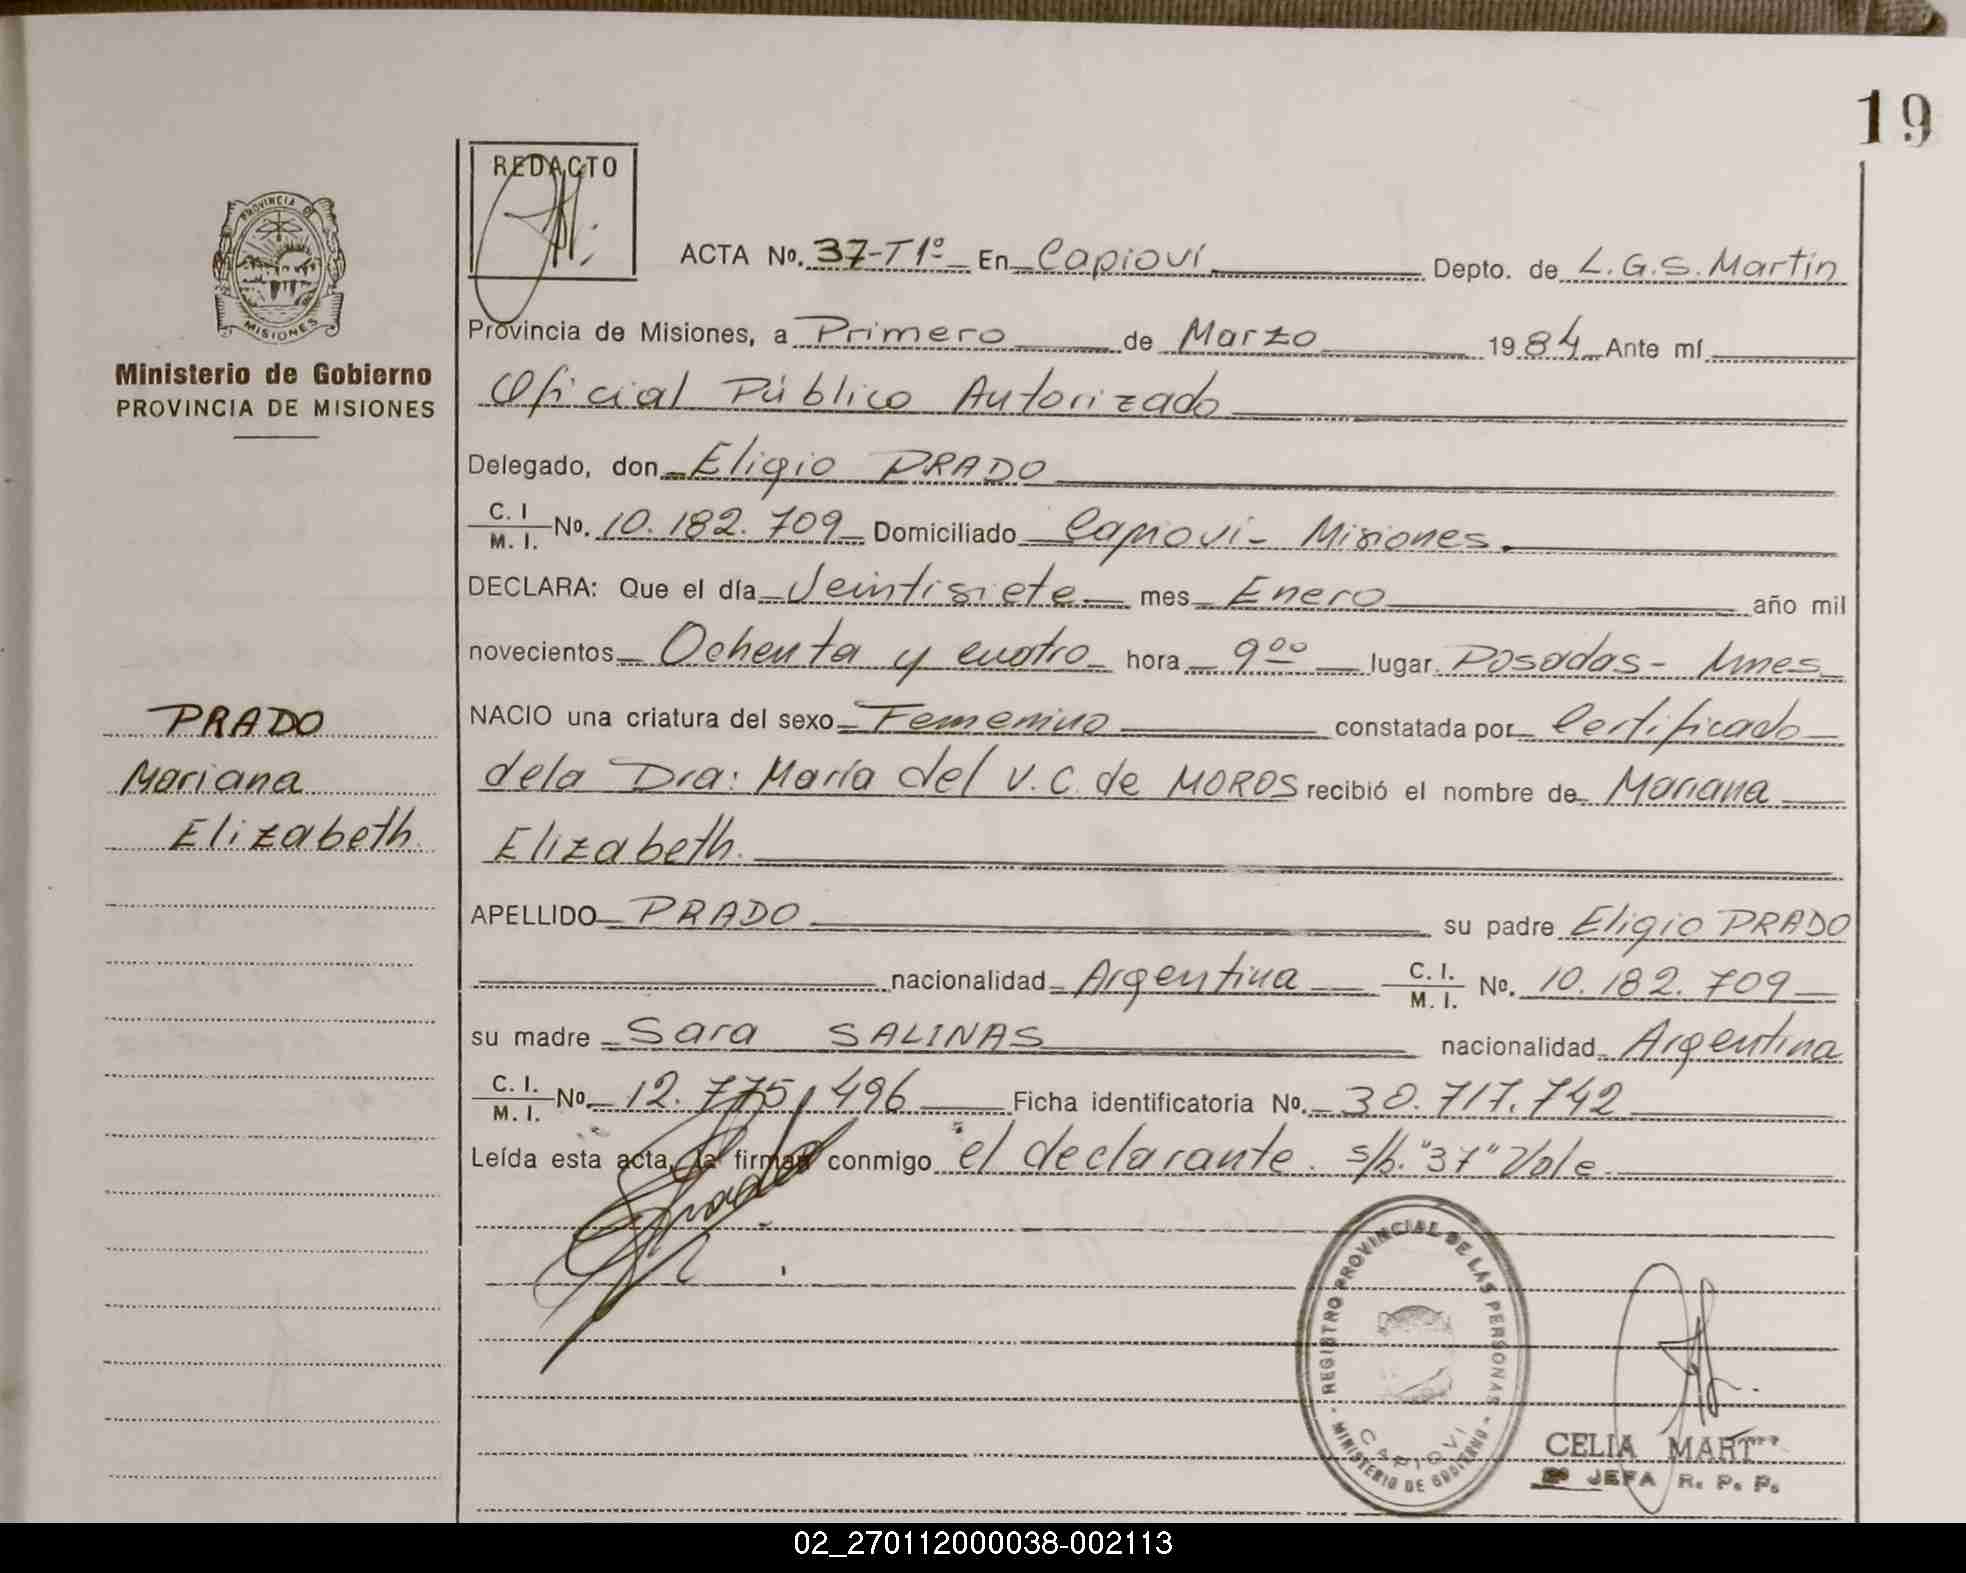 19
REDACTO
PROVINCIA DE
MISIONES
Ministerio de Gobierno
PROVINCIA DE MISIONES
ACTA No. 37-T1º En Capioví Depto. de L.G.S. Martín
Provincia de Misiones, a Primero de Marzo 1984 Ante mí
Oficial Público Autorizado
Delegado, don Eligio PRADO
C. I / M. I. No. 10.182.709 Domiciliado Capioví - Misiones.
DECLARA: Que el día Veintisiete mes Enero año mil
novecientos Ochenta y cuatro hora 9 00 lugar Posadas - Mnes
NACIO una criatura del sexo Femenino constatada por Certificado
de la Dra: María del V. C. de MOROS recibió el nombre de Mariana
Elizabeth.
APELLIDO PRADO su padre Eligio PRADO
nacionalidad Argentina C. I. / M. I. No. 10.182.709
su madre Sara SALINAS nacionalidad Argentina
C. I. / M. I. No. 12.775.496 Ficha identificatoria No. 30.717.742
Leída esta acta, la firman conmigo el declarante. s/b. "37" Vale
PRADO
Mariana
Elizabeth
Prado
REGISTRO PROVINCIAL DE LAS PERSONAS
CAPIOVI
MINISTERIO DE GOBIERNO
CELIA
JEFA R. P. P.
02_270112000038-002113